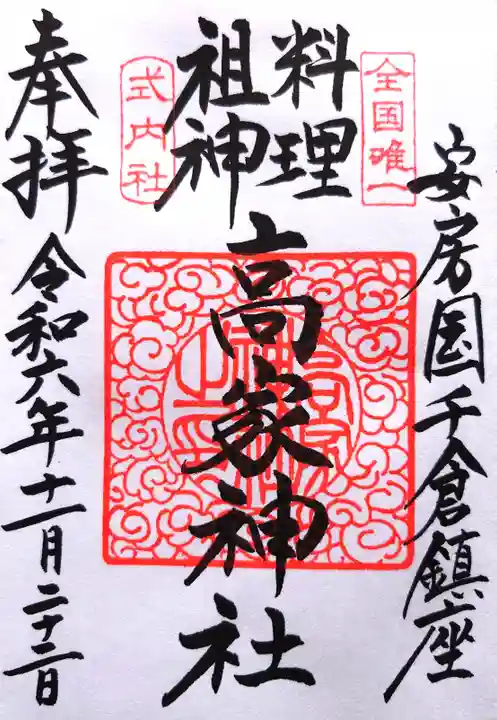 全国唯一
安房国千倉鎮座
料理
祖神
高家神社
式内社
奉拝
令和六年十一月二十二日